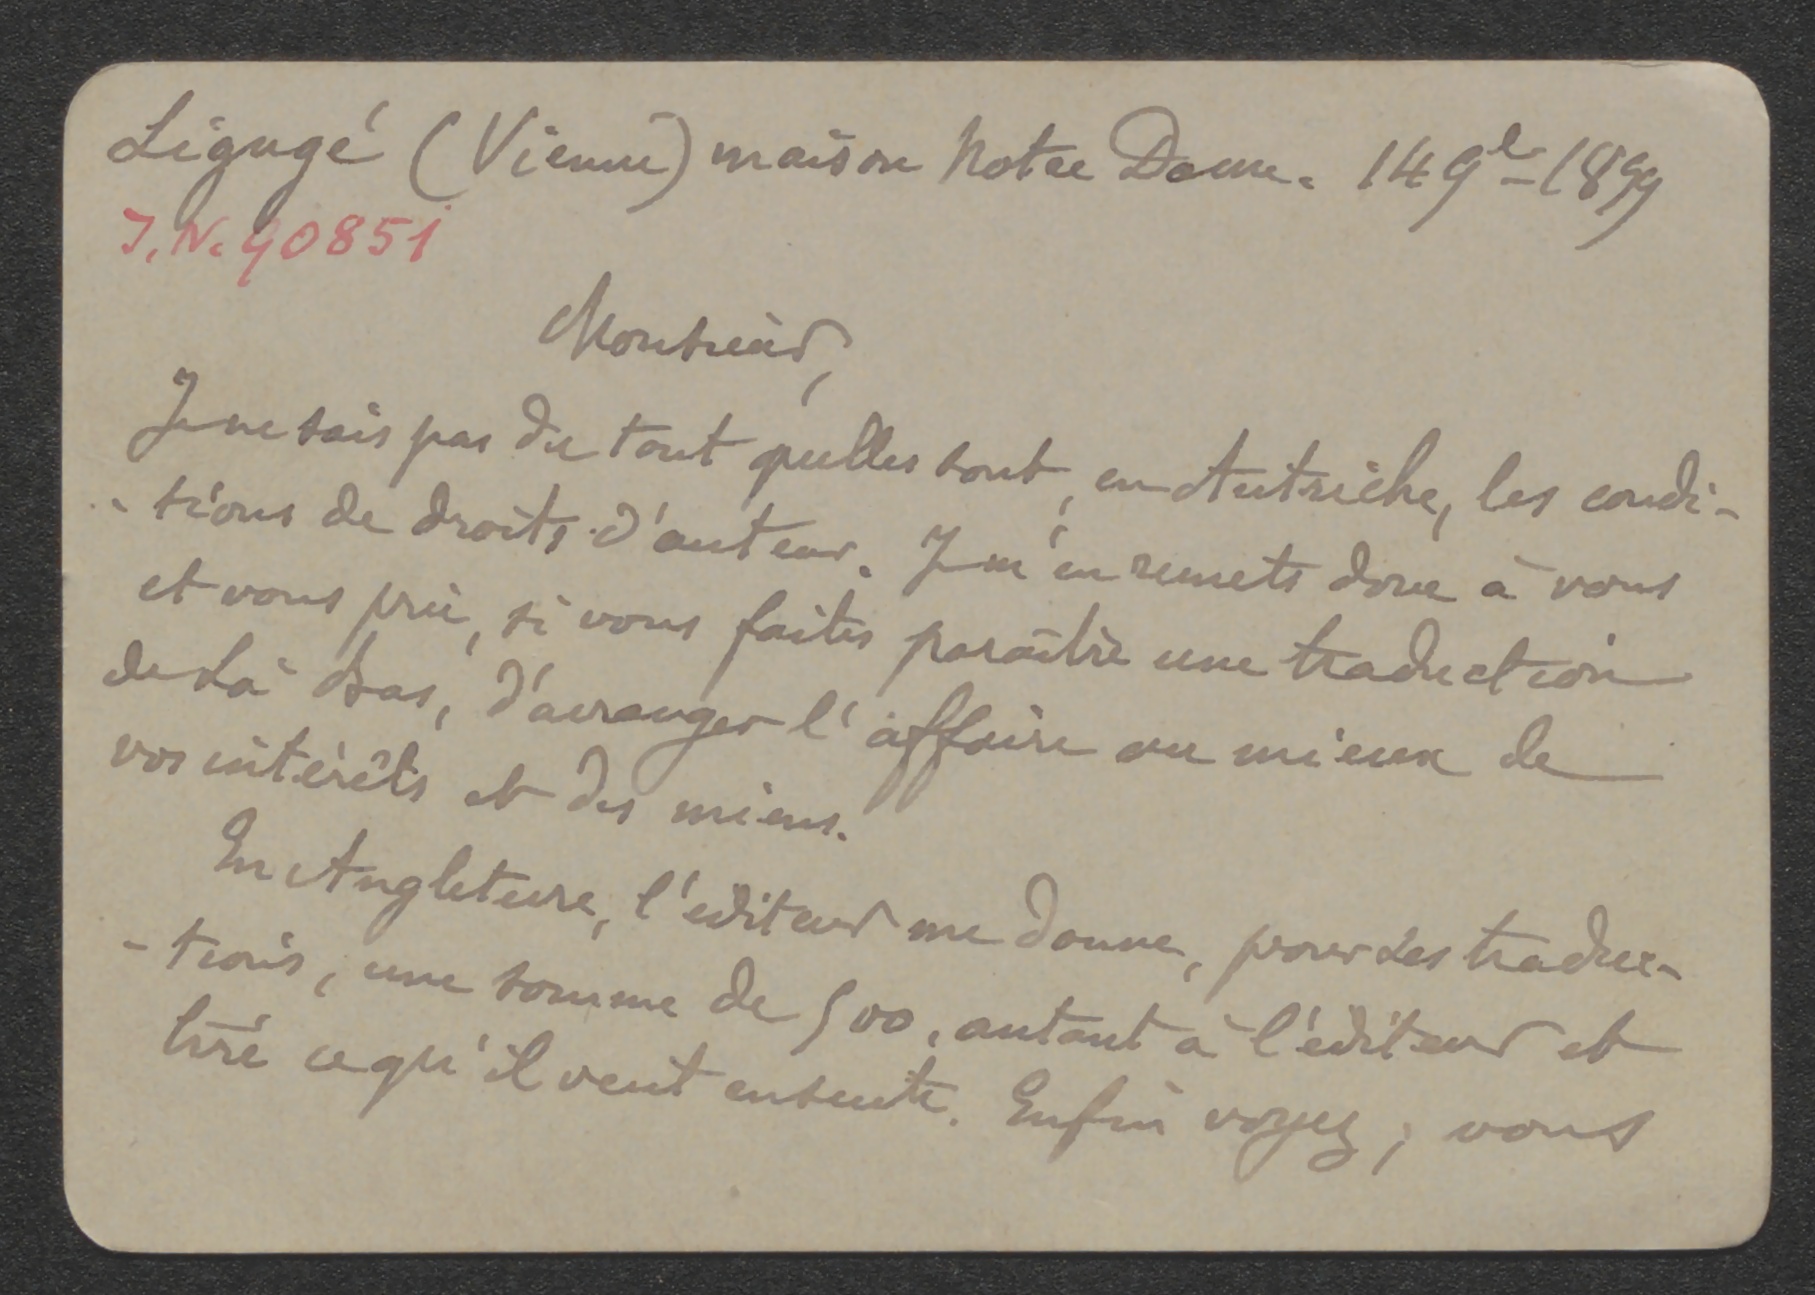 Ligugé (Vienne) maison Notre Dame. 14 9b-1899
I.N. 90851
Monsieur,
Je ne sais pas du tout quelles sont, en Autriche, les condi-
-tions de droits d'auteur. Je m'en remets donc à vous
et vous prie, si vous faites paraître une traduction
de Là Bas, d'arranger l'affaire au mieux de
vos intérêts et des miens.
En Angleterre, l'éditeur me donne, pour les traduc-
-tions, une somme de 500, autant à l'éditeur et
tire ce qu'il veut ensuite. Enfin voyez; vous